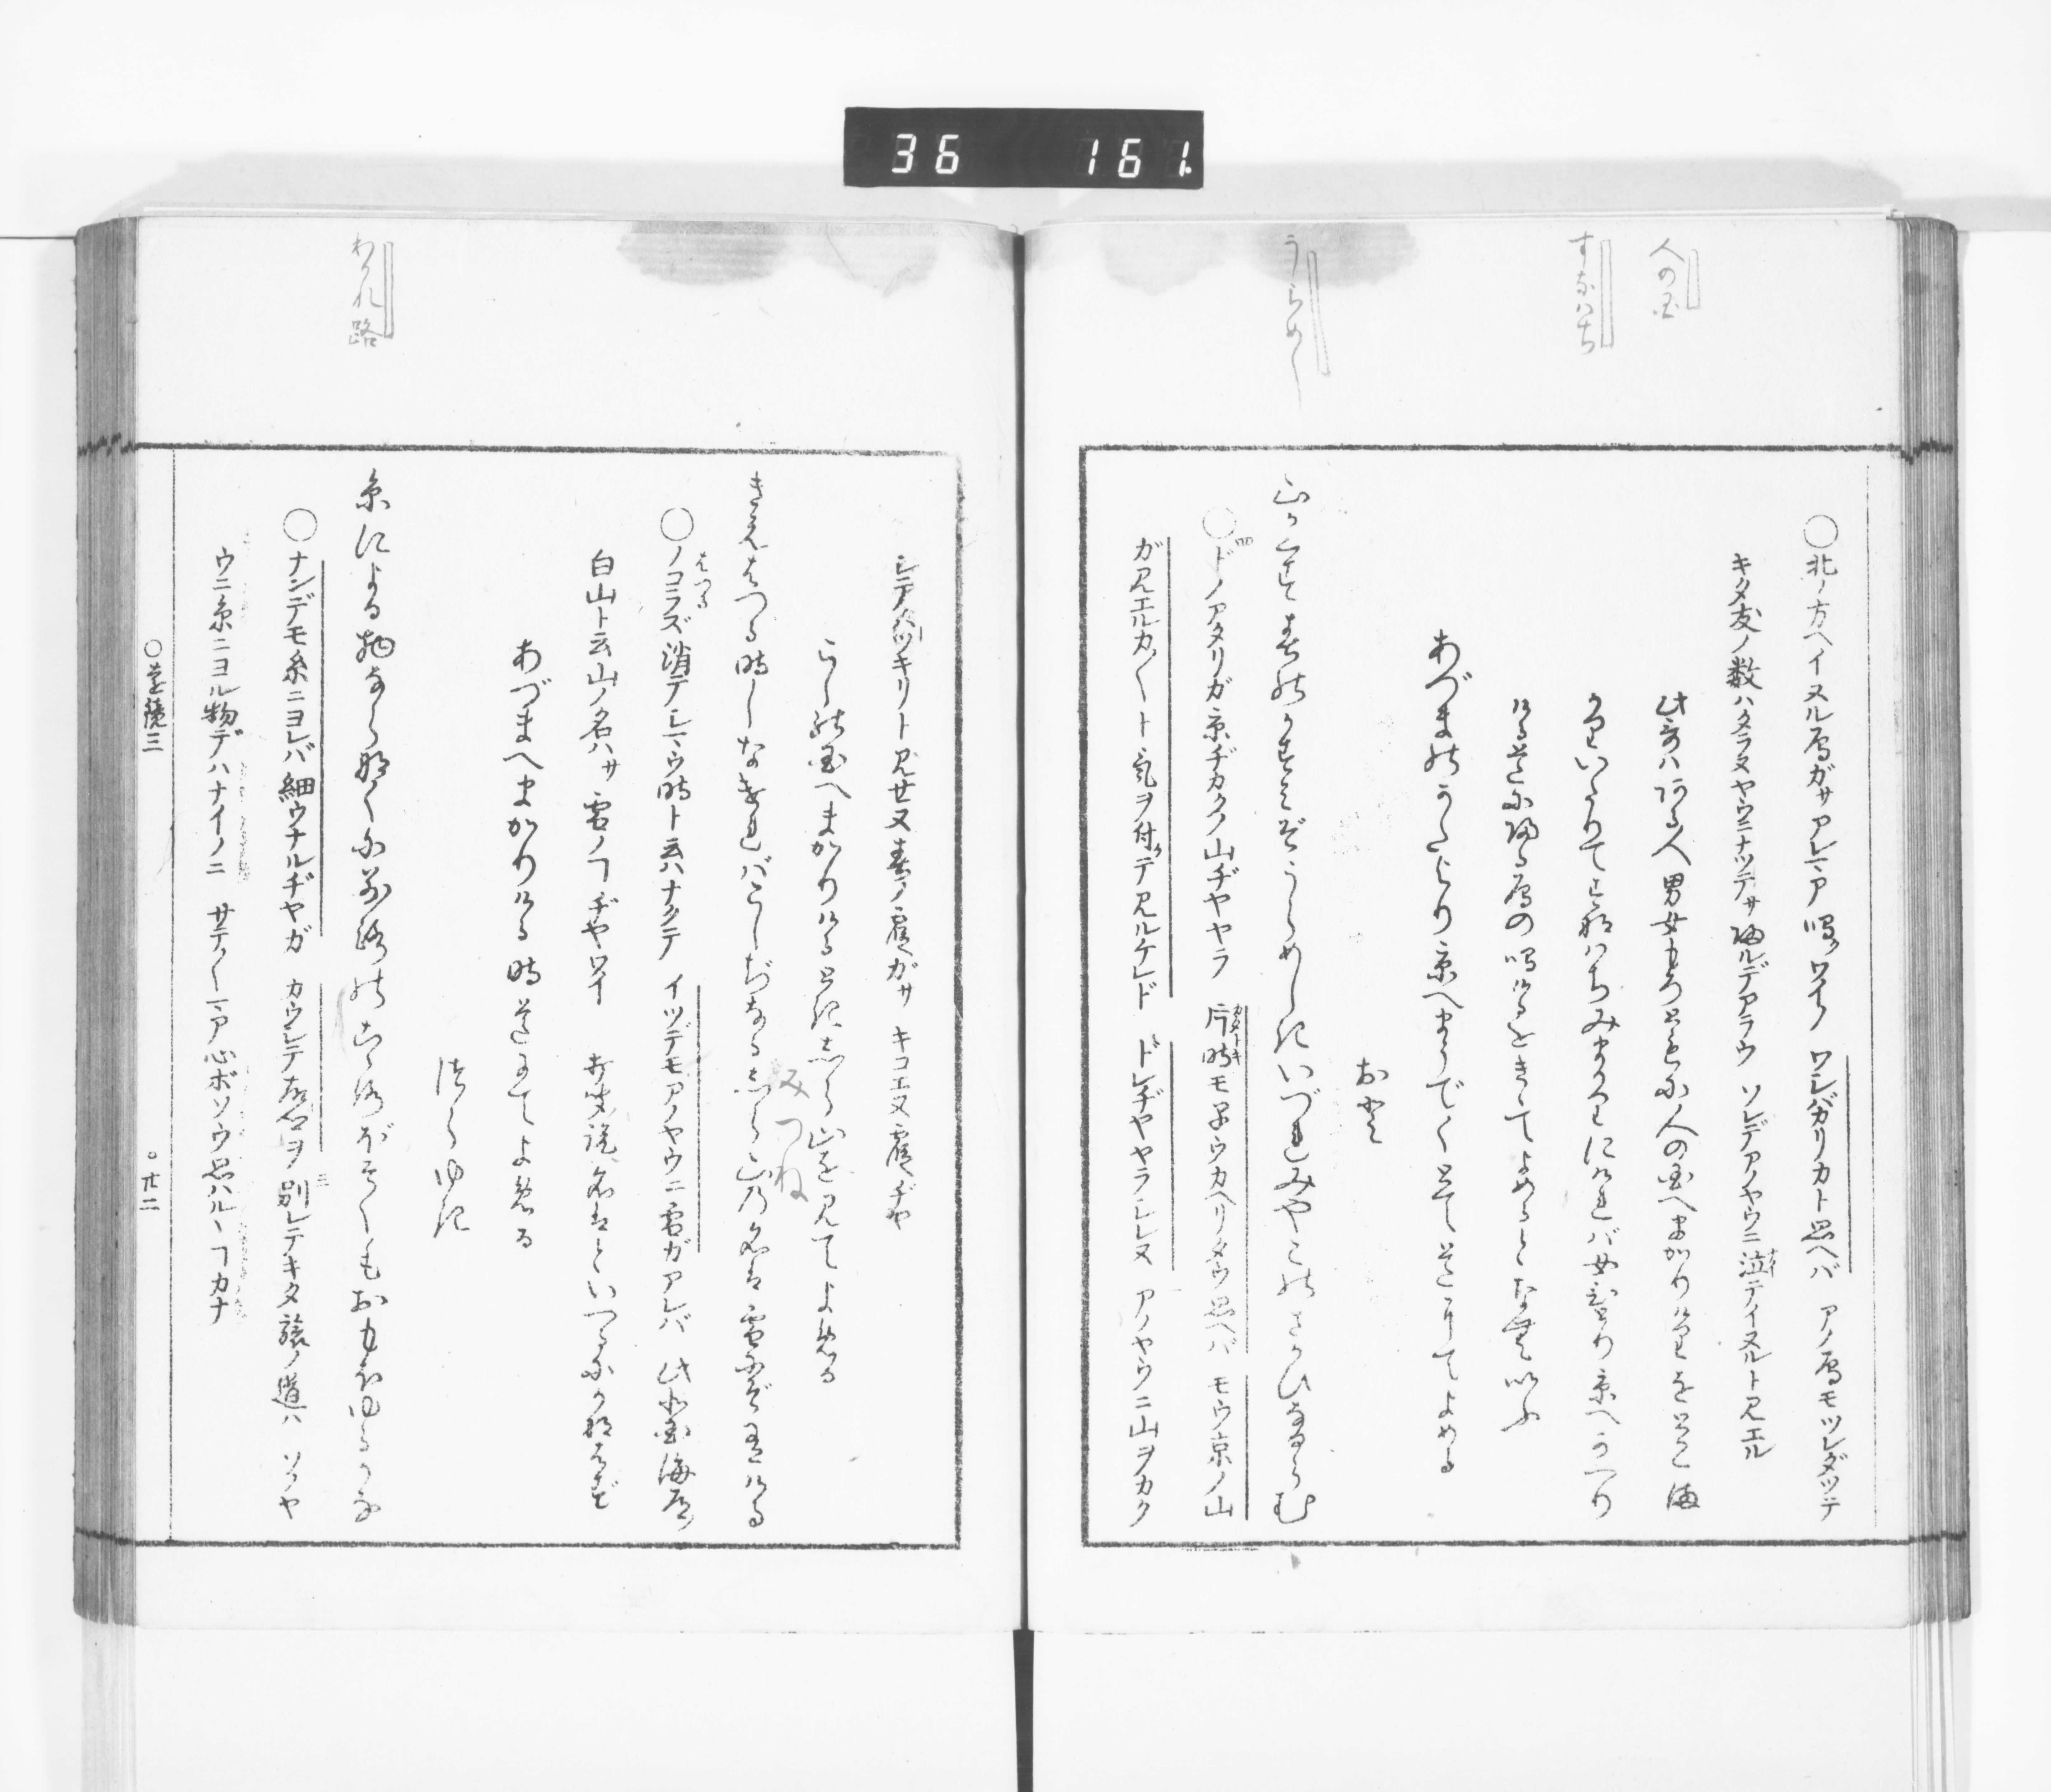 人の国
すなはち
うらめし
○北ノ方ヘイヌル雁ガサアレマア鳴クワイノ ワレバカリカト思ヘバ アノ雁モツレダツテ
キタ友ノ数ハタラヌヤウニナツテサ帰ルデアラウ ソレデアノヤウニ泣テイヌルト見エル
此哥ハある人男女もろともに人の国へまかりけりをとこま
かりいたりてすなはちみまかりにければ女ひとり京へかへり
ける道に帰る雁の鳴けるをきゝてよめるとなむいふ
あづまのかたより京へまうでくとて道にてよめる
おと
山かくす春の霞ぞうらめしきいづれみやこのさかひなるらむ
○ドノアタリガ京ヂカクノ山ヂヤヤラ 片時モ早ウカヘリタウ思ヘバ モウ京ノ山
ガ見エルカ〳〵ト気ヲ付テ見ルケレド ドレヂヤヤラシレヌ アノヤウニ山ヲカク
わかれ路
シテハツキリト見セヌ春ノ霞ガサ キコエヌ霞ヂヤ
こしの国へまかりける時しら山を見てよめる
みつね
きえはつる時しなければこしぢなるしら山の名は雪にぞ有ける
○ノコラズ消テシマウ時ト云ハナクテ イツデモアノヤウニ雪ガアレバ 此北国海道ノ
白山ト云山ノ名ハサ 雪ノヿヂヤワイ 打聞説名はといへるにかなはず
あづまへまかりける時道にてよめる
つらゆき
糸による物ならなくに別路の心ぼそくもおもほゆるかな
○ナンデモ糸ニヨレバ細ウナルヂヤガ カウシテ 別レテキタ旅ノ道ハ ソノヤ
ウニ糸ニヨル物デハナイノニ サテ〳〵マア心ボソウ思ハルヽヿカナ
○遠鏡三 ○廿二
36 161